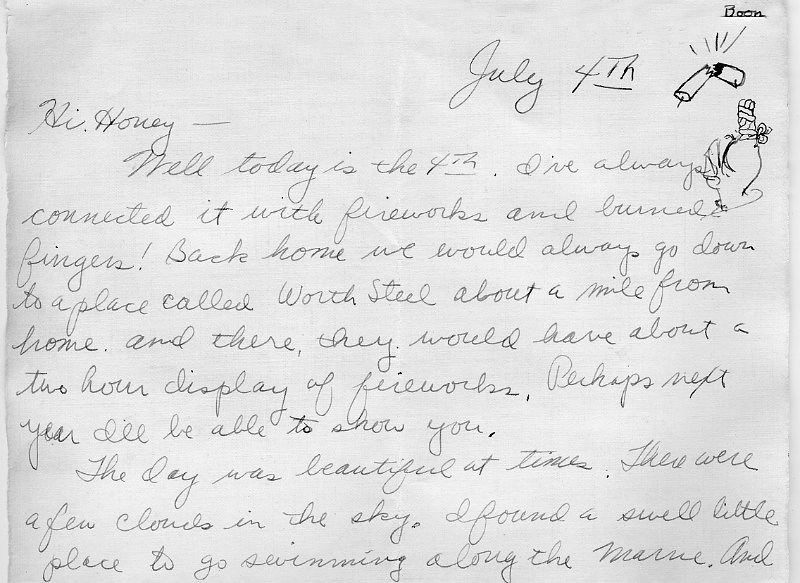 Boom
July 4th
Hi. Honey —
Well today is the 4th. I've always
connected it with fireworks and burned
fingers! Back home we would always go down
to a place called Worth Steel about a mile from
home. and there, they would have about a
two hour display of fireworks. Perhaps next
year I'll be able to show you.
The day was beautiful at times. There were
a few clouds in the sky. I found a swell little
place to go swimming along the Marne. And